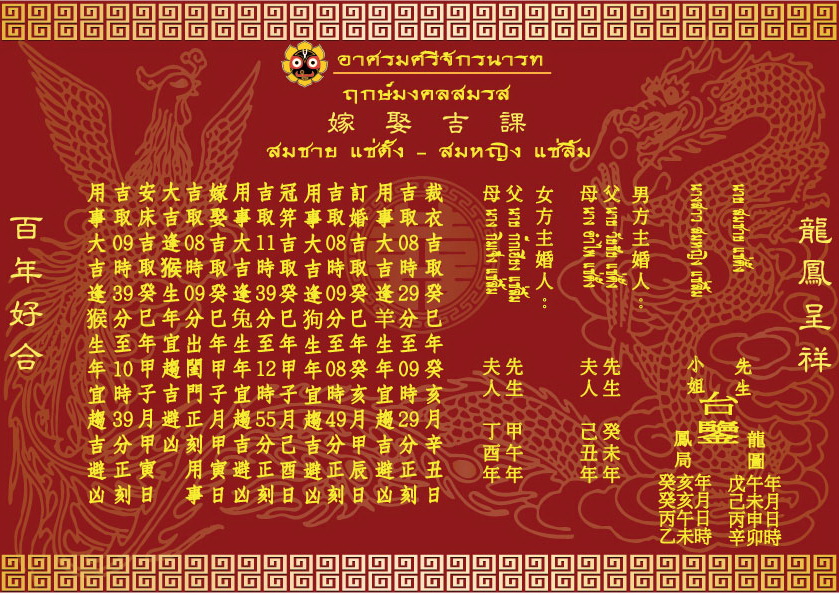 อาศรมศรีจักรนารท
ฤกษ์มงคลสมรส
嫁娶吉課
สมชาย แซ่ตั้ง - สมหญิง แซ่ลิ้ม
龍鳳呈祥
นาย สมชาย แซ่ตั้ง 先生
นางสาว สมหญิง แซ่ลิ้ม 小姐
台鑒
龍圖
戊午年
己未月
丙申日
辛卯時
鳳局
癸亥年
癸亥月
丙午日
乙未時
男方主婚人:
父 นาย แซ่ตั้ง 先生 癸未年
母 นาง แซ่ตั้ง 夫人 己丑年
女方主婚人:
父 นาย แซ่ลิ้ม 先生 甲午年
母 นาง แซ่ลิ้ม 夫人 丁酉年
裁衣吉取癸巳年癸亥月辛丑日
吉取08時29分至09時29分正刻
用事大吉逢羊生年宜趨吉避凶
訂婚吉取癸巳年癸亥月甲辰日
吉取08時09分至08時49分正刻
用事大吉逢狗生年宜趨吉避凶
冠笄吉取癸巳年甲子月己酉日
吉取11時39分至12時55分正刻
用事大吉逢兔生年宜趨吉避凶
嫁娶吉取癸巳年甲子月甲寅日
吉取08時09分出閨門正刻用事
大吉逢猴生年宜趨吉避凶
安床吉取癸巳年甲子月甲寅日
吉取09時39分至10時39分正刻
用事大吉逢猴生年宜趨吉避凶
百年好合